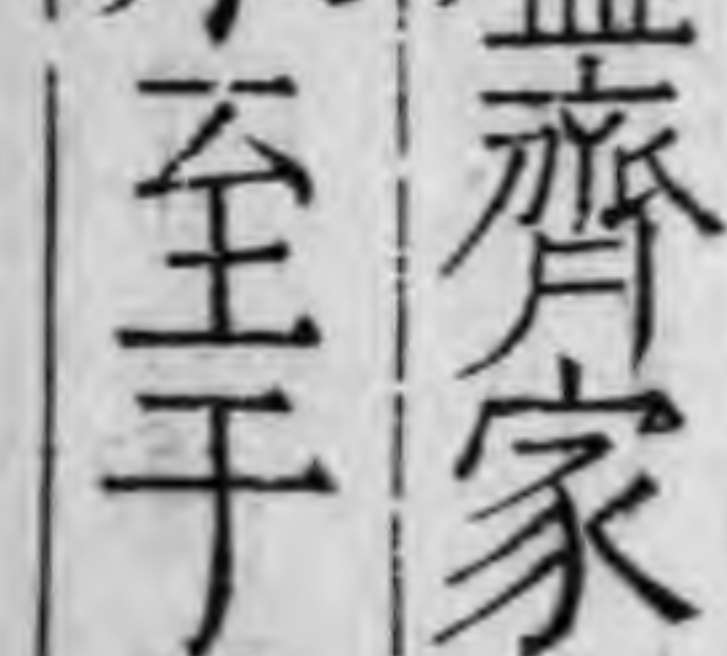 齊家
至于